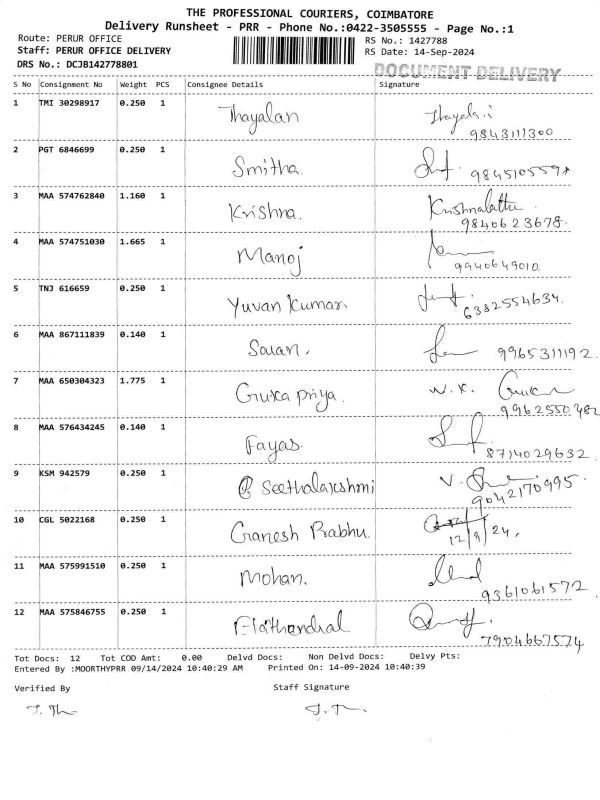 THE PROFESSIONAL COURIERS, COIMBATORE
Delivery Runsheet - PRR - Phone No.:0422-3505555 - Page No.:1
Route: PERUR OFFICE RS No.: 1427788
Staff: PERUR OFFICE DELIVERY RS Date: 14-Sep-2024
DRS No.: DCJB142778801 DOCUMENT DELIVERY
S No Consignment No Weight PCS Consignee Details Signature
1 TMI 30298917 0.250 1 Thayalan
9843111300
2 PGT 6846699 0.250 1 Smitha
3 MAA 574762840 1.160 1 Krishna.
9840623678.
4 MAA 574751030 1.665 1 Manoj
9940649010
5 TNJ 616659 0.250 1 Yuvan Kumar
6382554634.
6 MAA 867111839 0.140 1 9965311192.
7 MAA 650304323 1.775 1 priya.
9962550482
8 MAA 576434245 0.140 1 Fayas.
8714029632.
9 KSM 942579 0.250 1 Seethalakshmi
9042170995.
10 CGL 5022168 0.250 1 Ganesh Prabhu.
12/9/24.
11 MAA 575991510 0.250 1 Mohan.
9361061572
12 MAA 575846755 0.250 1
7904667574
Tot Docs: 12 Tot COD Amt: 0.00 Delvd Docs: Non Delvd Docs: Delvy Pts:
Entered By :MOORTHYPRR 09/14/2024 10:40:29 AM Printed On: 14-09-2024 10:40:39
Verified By Staff Signature